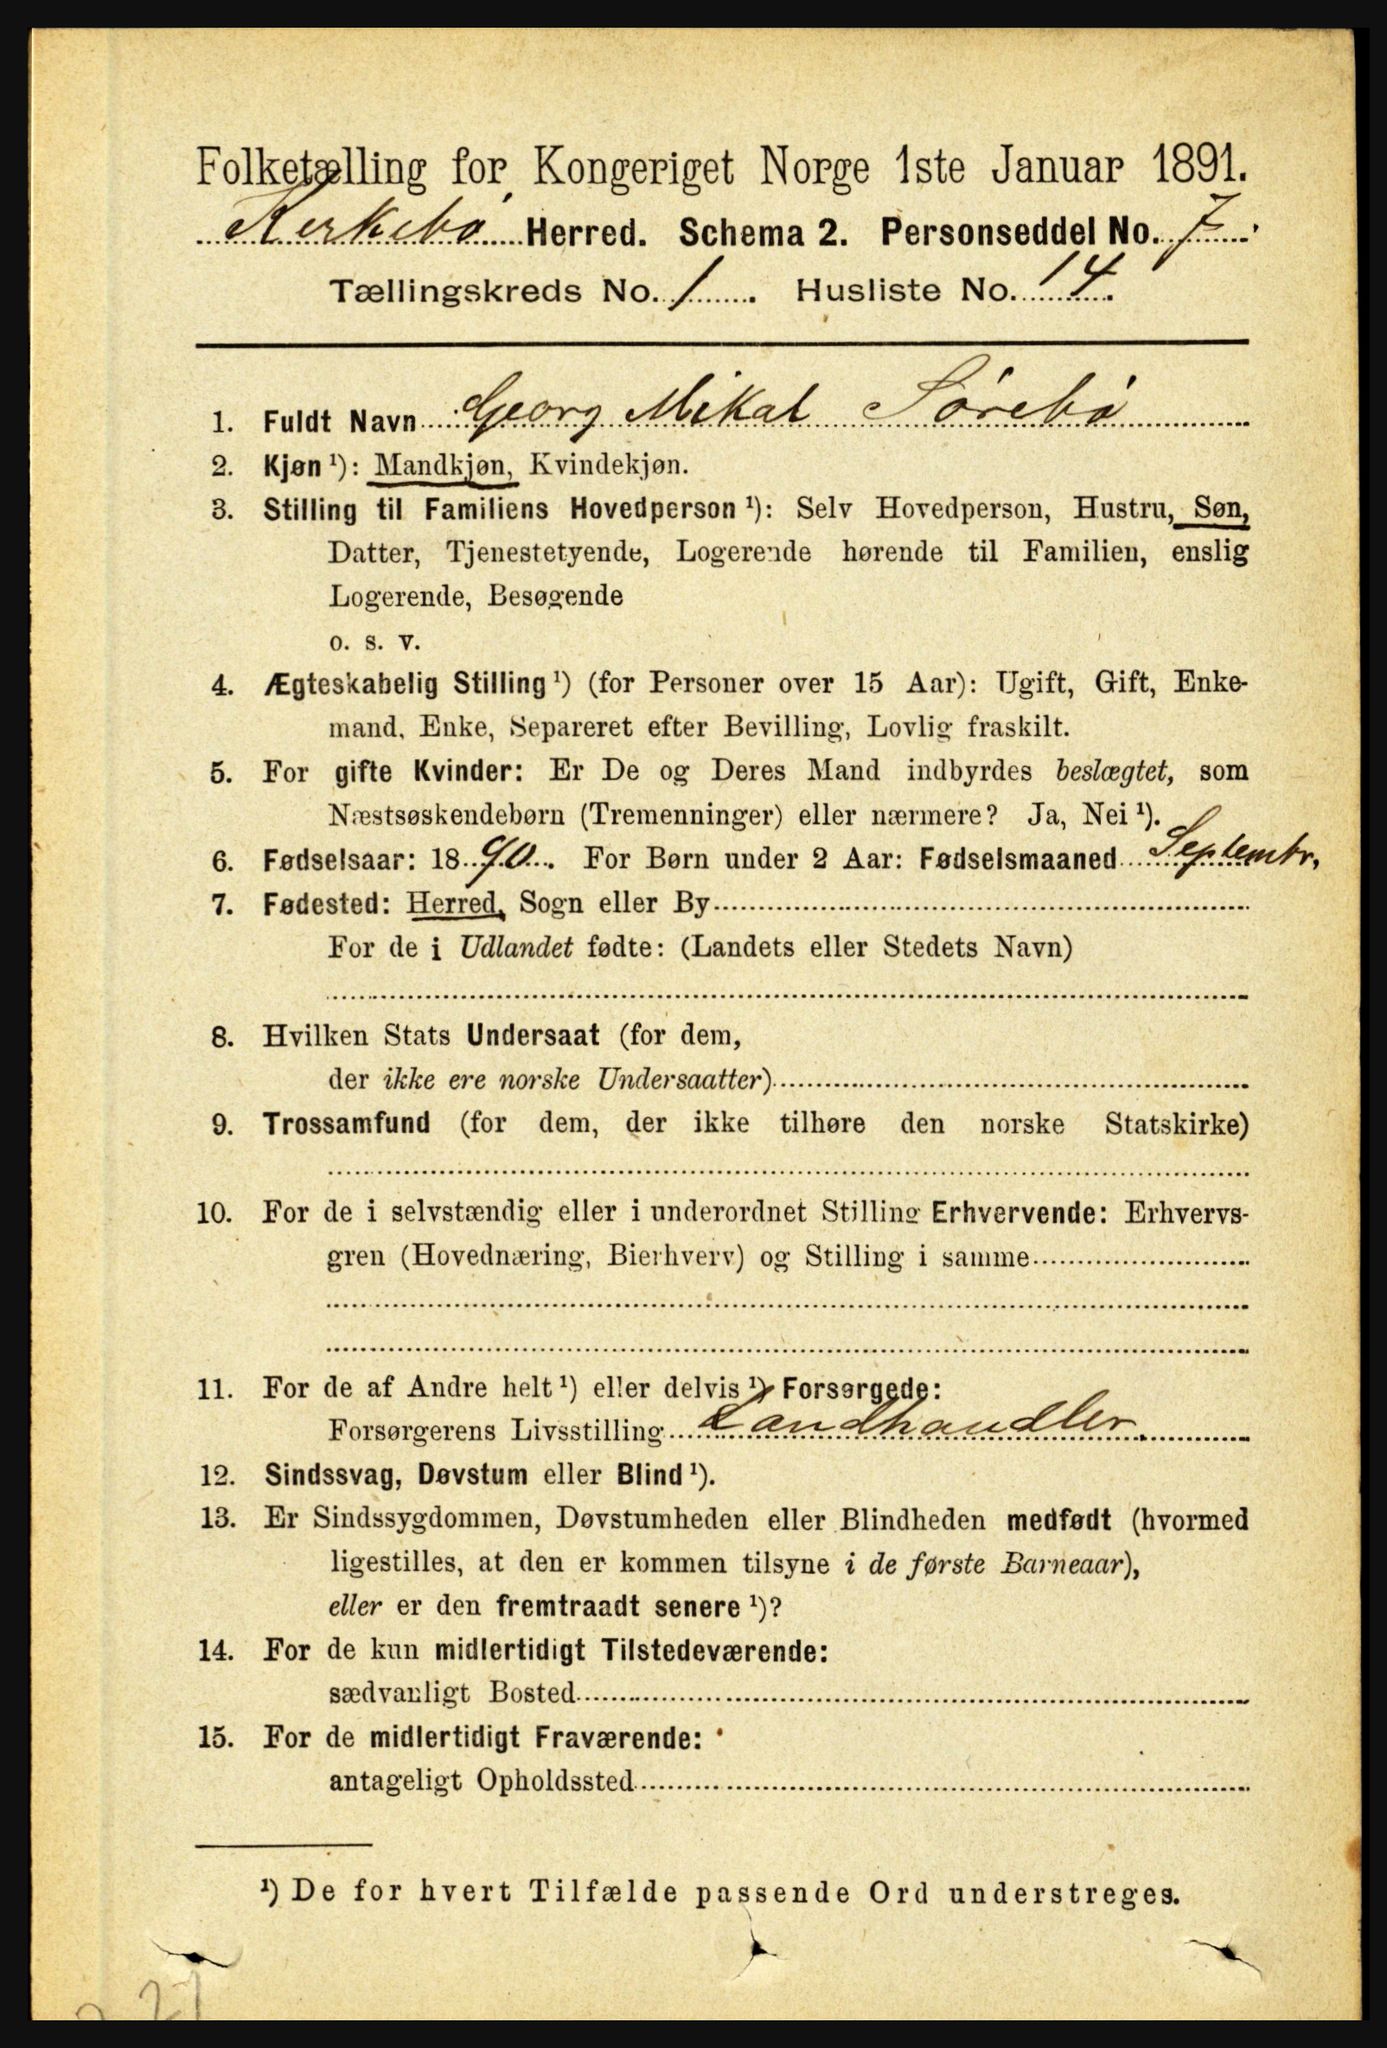 Folketælling for Kongeriget Norge 1ste Januar 1891.
Kirkebø Herred. Schema 2. Personseddel No. 7.
Tællingskreds No. 1. Husliste No. 14.
1. Fuldt Navn Georg Mikal Sørebø
2. Kjøn ¹): Mandkjøn, Kvindekjøn.
3. Stilling til Familiens Hovedperson ¹): Selv Hovedperson, Hustru, Søn,
Datter, Tjenestetyende, Logerende hørende til Familien, enslig
Logerende, Besøgende
o. s. v.
4. Ægteskabelig Stilling ¹) (for Personer over 15 Aar): Ugift, Gift, Enke-
mand, Enke, Separeret efter Bevilling, Lovlig fraskilt.
5. For gifte Kvinder: Er De og Deres Mand indbyrdes beslægtet, som
Næstsøskendebørn (Tremenninger) eller nærmere? Ja, Nei ¹).
6. Fødselsaar: 1890. For Børn under 2 Aar: Fødselsmaaned Septembr,
7. Fødested: Herred, Sogn eller By
For de i Udlandet fødte: (Landets eller Stedets Navn)
8. Hvilken Stats Undersaat (for dem,
der ikke ere norske Undersaatter)
9. Trossamfund (for dem, der ikke tilhøre den norske Statskirke)
10. For de i selvstændig eller i underordnet Stilling Erhvervende: Erhvervs-
gren (Hovednæring, Bierhverv) og Stilling i samme
11. For de af Andre helt ¹) eller delvis ¹) Forsørgede:
Forsørgerens Livsstilling Landhandler.
12. Sindssvag, Døvstum eller Blind ¹).
13. Er Sindssygdommen, Døvstumheden eller Blindheden medfødt (hvormed
ligestilles, at den er kommen tilsyne i de første Barneaar),
eller er den fremtraadt senere ¹)?
14. For de kun midlertidigt Tilstedeværende:
sædvanligt Bosted
15. For de midlertidigt Fraværende:
antageligt Opholdssted
¹) De for hvert Tilfælde passende Ord understreges.